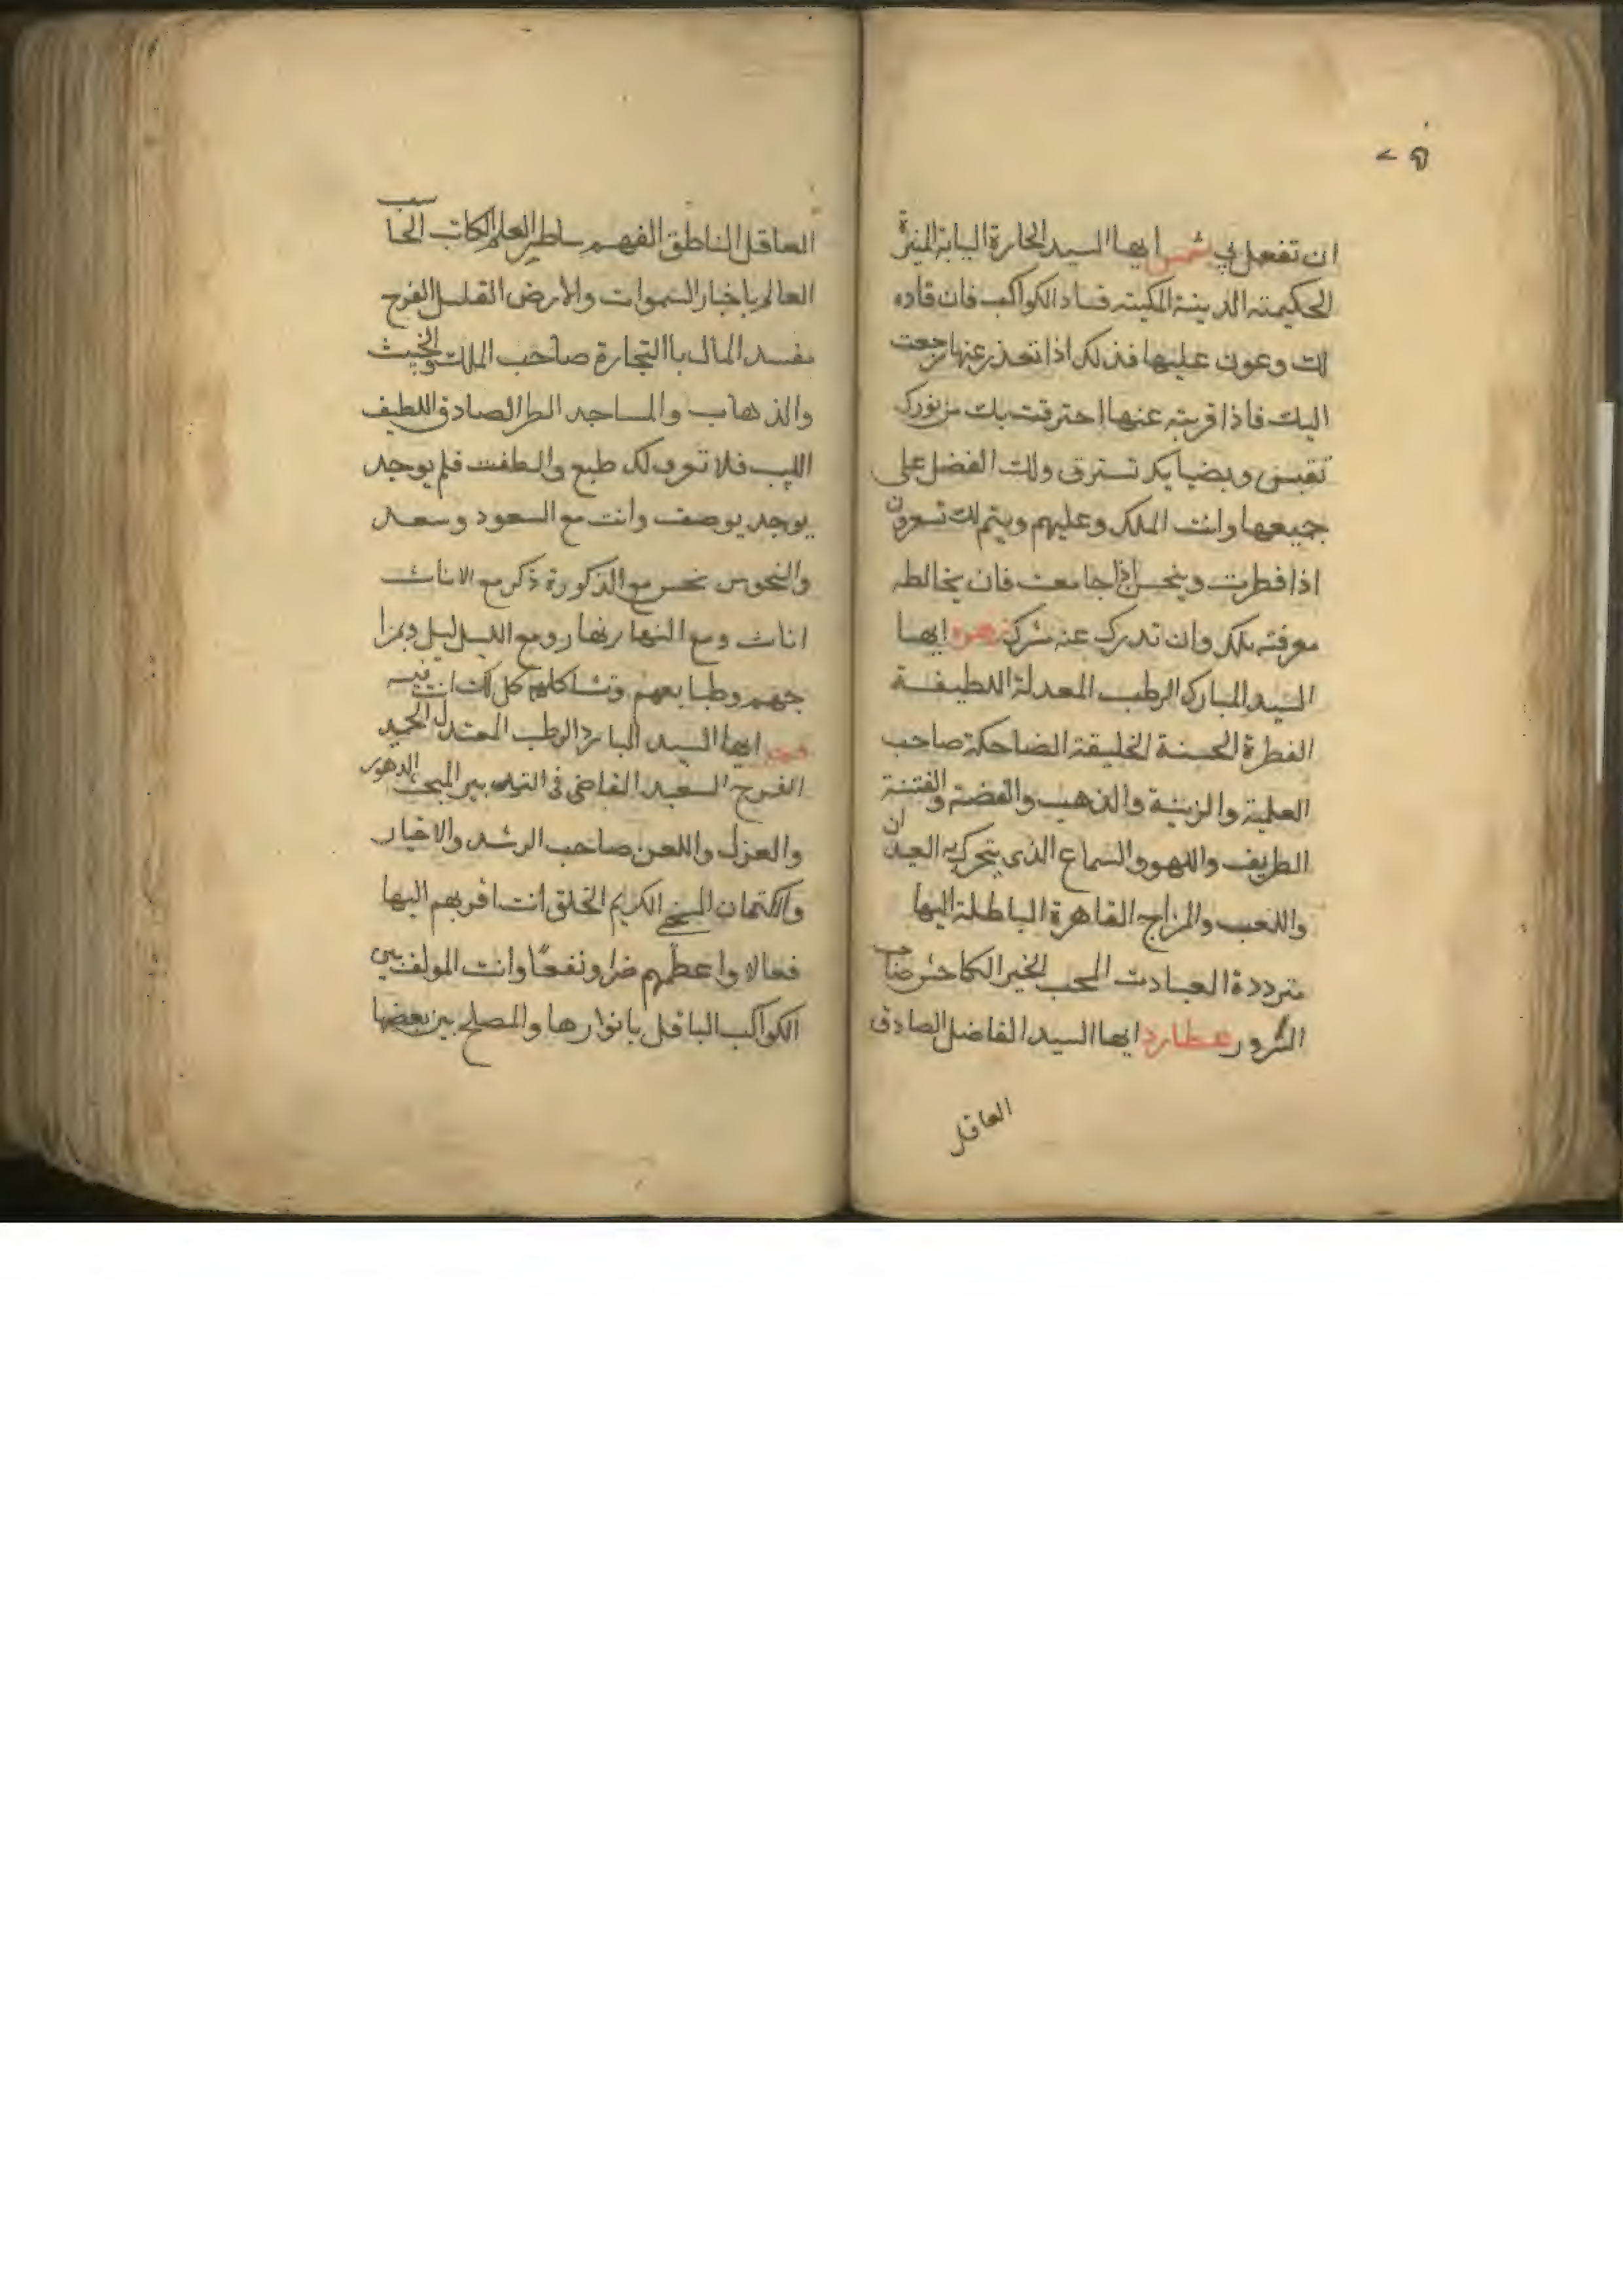 ان تفعل لي شمس ايها السيد الحارة اليابة المنيرة
الحكيمته الدينية المكيته فساد الكواكب فان قاده
لك وعون عليها فذلك اذا تعذر عنها رجعت
اليك فاذا قربته عنها احترقت بك من نورك
تقبس وبضيايك تسترق ولك الفضل على
جميعها وانت الملك وعليهم ويتم لك تسعرون
اذا فطرت وينحس اذا جامعت فان يخالطه
معرفته بلك وان تدرك عنه شرك زهره ايها
السيد المبارك الرطب المعدلة اللطيفة
الفطرة الحسنة الخليقة الضاحكة صاحب
العلية والزينة والذهب والفضة والفتنة
الطريف واللهو والسماع الذى يتحرك به العيدان
واللعب والمزاج القاهرة الباطلة اليها
مترددة العبادت المحب الخير الكاحش صاحب
السرور عطارد ايها السيد الفاضل الصادق
العاقل
العاقل الناطق الفهم ساطير العلم الكاتب الحاسب
العالم باخبار السموات والارض القليل الفرح
مفسد المال باالتجارة صاحب الملك والخبيث
والذهاب والمساجد الصادق اللطيف
اللبيب فلا تعرف لك طبع والطفت فلم يوجد
يوجد يوصف وانت مع السعود وسعد
والنحوس نحس مع الذكورة ذكر مع الاناث
اناث ومع النهار نهار ومع الليل ليل وبمزا
جهم وطبايعهم وتشاكلهم كل لك انت فيه
قمر ايها السيد البارد الرطب المعتدل الحميد
الفرح السعيد القاضى فى الدهور
والعزل واللعن صاحب الرشد والاخيار
والكتمان السخى الكريم الخلق انت اقربهم اليها
فعالا واعظهم ضرا ونفعًا وانت المولف بين
الكواكب الباقل بانوارها والمصلح بين بعضها